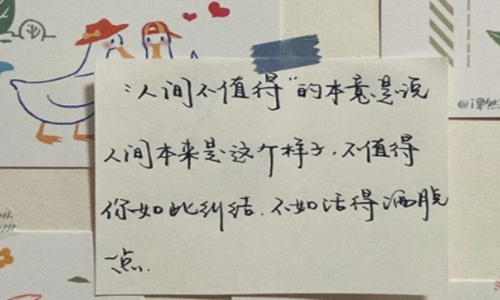 “人间不值得”的本意是说
人间本来是这个样子，不值得
你如此纠结，不如活得洒脱
一点.